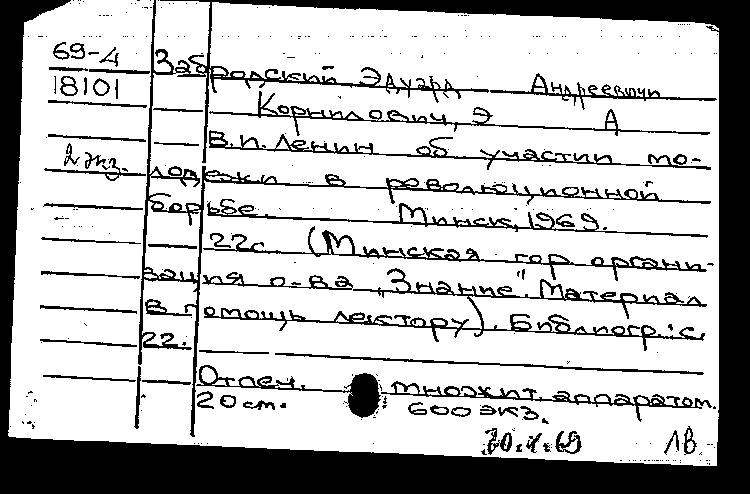 69-4 Забродский Эдуард Андреевич
18101
Корнилович, Э А
В.И. Ленин об участии мо-
2 экз. лодежи в революционной
борьбе. Минск, 1969.
22с. (Минская гор. органи-
зация о-ва „Знание". Материал
в помощь лектору). Библиогр.: с.
22.
Отпеч. множит. аппаратом.
20 см. 600 экз.
ЛВ